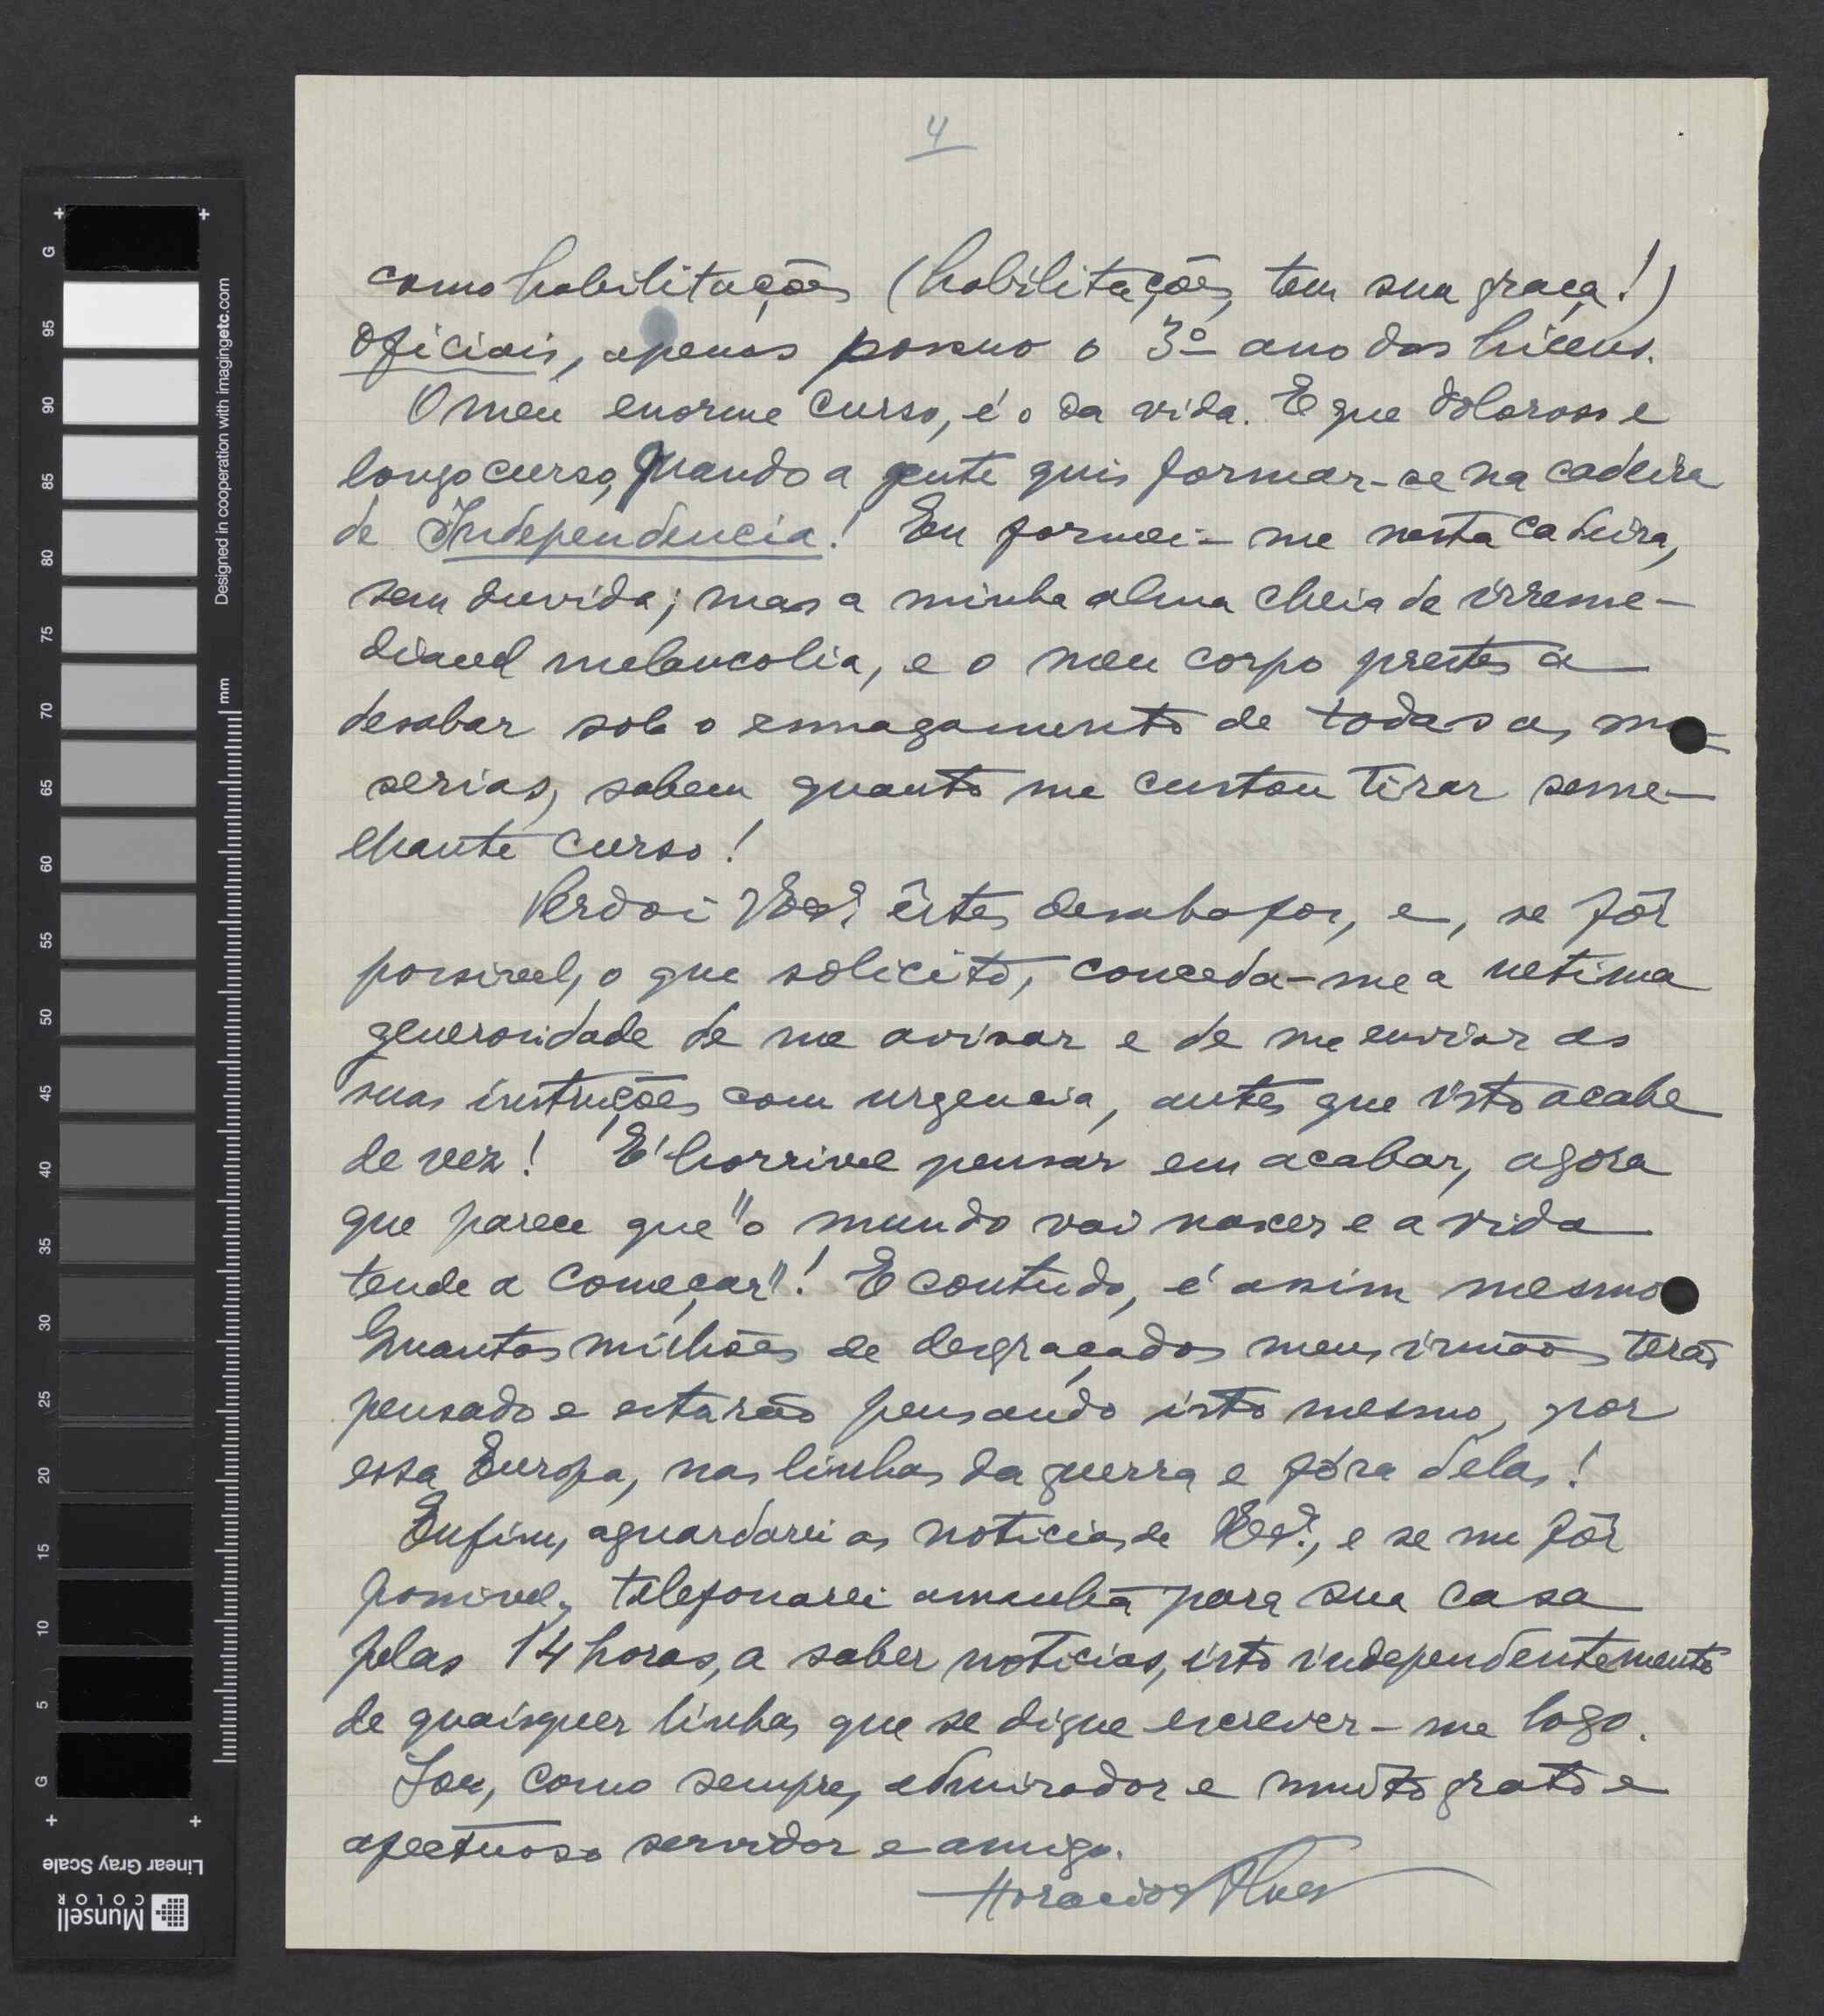 4
como habilitações (habilitações, tem sua graça!)
oficiais, apenas possuo o 3º ano dos liceus.
O meu enorme curso, é o da vida. E que doloroso e
longo curso, quando a gente quis formar-se na cadeira
de Independencia! Eu formei-me nesta cadeira,
sem duvida; mas a minha alma cheia de irreme-
diavel melancolia, e o meu corpo prestes a
desabar sob o esmagamento de todas as mi=
serias, sabem quanto me custou tirar seme-
lhante curso!
Perdoi V. Ex.ª êstes desabafos, e, se fôr
possivel, o que solicito, conceda-me a ultima
generosidade de me avisar e de me enviar as
suas instruções com urgencia, antes que isto acabe
de vez! É horrivel pensar em acabar, agora
que parece que "o mundo vai nascer e a vida
tende a começar"! E contudo, é assim mesmo
Quantos milhões de desgraçados meus irmãos terão
pensado e estarão pensando isto mesmo, por
essa Europa, nas linhas da guerra e fóra delas!
Enfim, aguardarei as noticias de V. Ex.ª, e se me fôr
possivel, telefonarei amanhã para sua casa
pelas 14 horas, a saber noticias, isto independentemente
de quaisquer linhas que se digne escrever-me logo.
Sou, como sempre, admirador e muito grato e
afectuoso servidor e amigo.
Horacio Alves
G 95 90 85 80 75 70 65 60 55 50 45 40 35 30 25 20 15 10 5 G
mm
Designed in cooperation with imagingetc.com
Linear Gray Scale
Munsell
COLOR